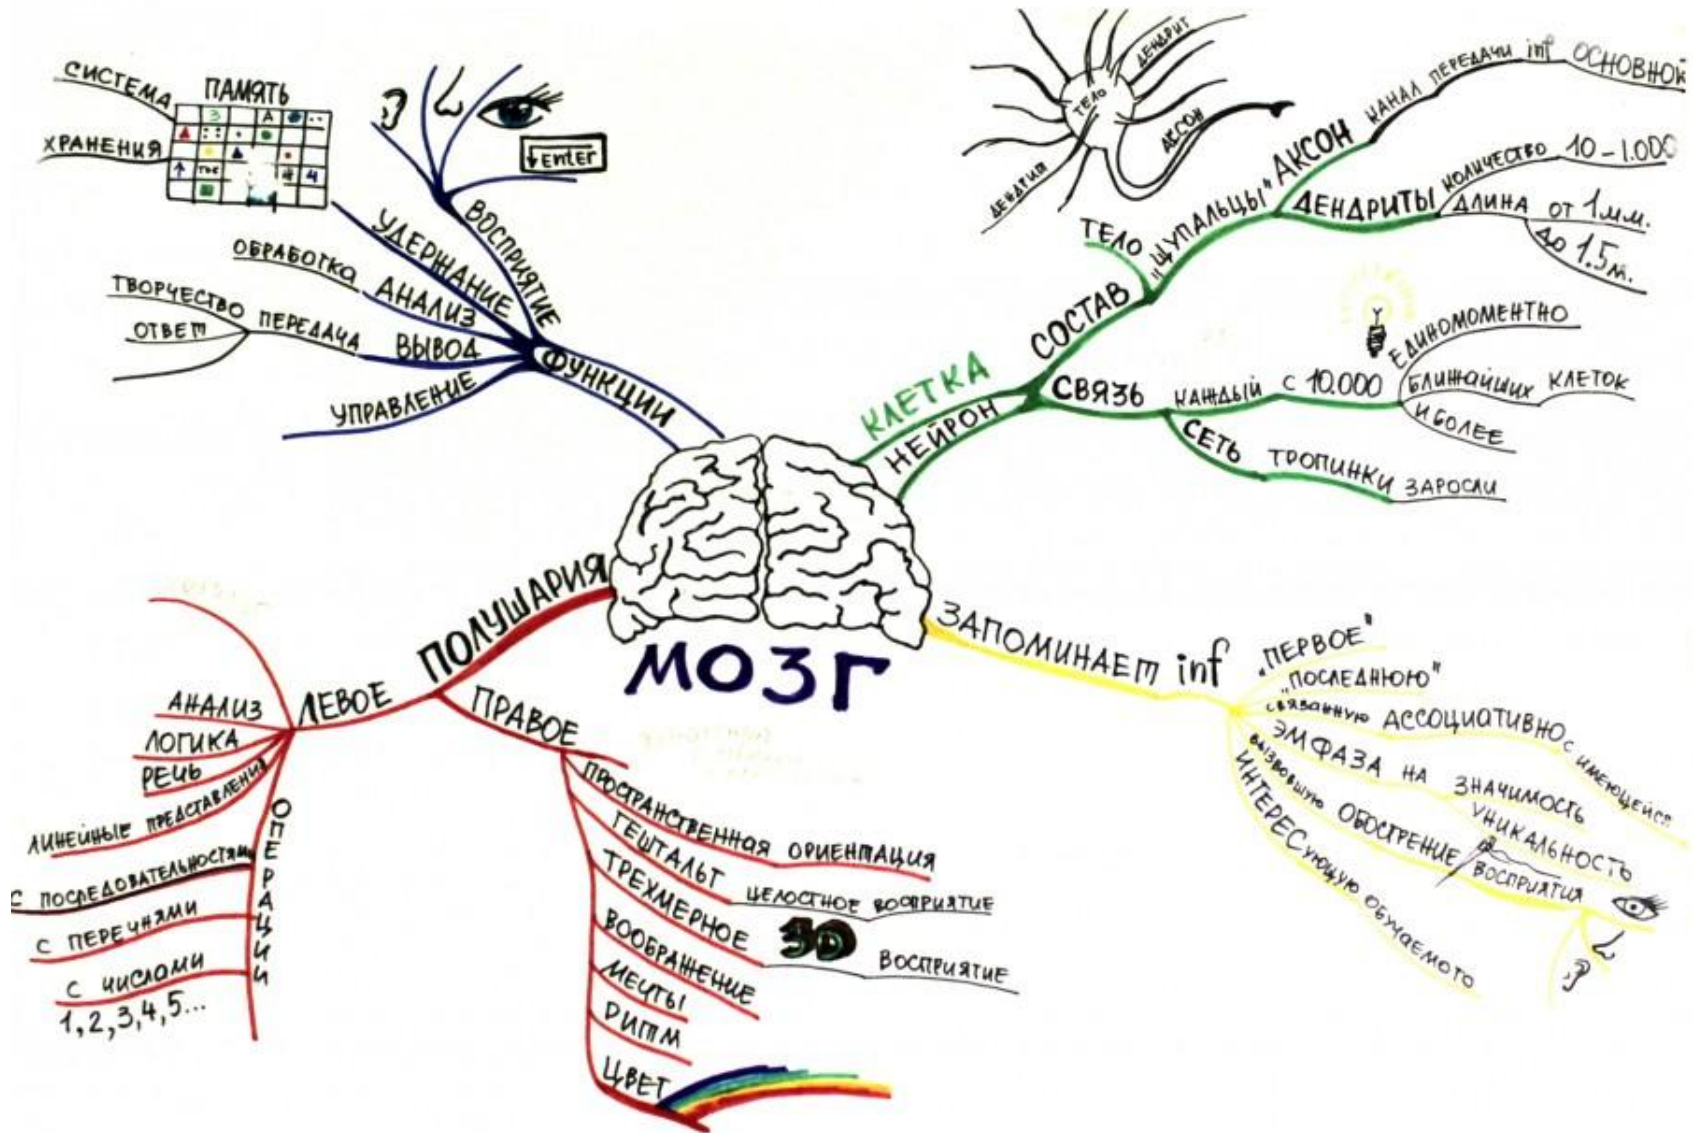 МОЗГ
ФУНКЦИИ
ВОСПРИЯТИЕ
Enter
УДЕРЖАНИЕ
ПАМЯТЬ
СИСТЕМА
ХРАНЕНИЯ
АНАЛИЗ
ОБРАБОТКА
ВЫВОД
ПЕРЕДАЧА
ТВОРЧЕСТВО
ОТВЕТ
УПРАВЛЕНИЕ
КЛЕТКА
НЕЙРОН
СОСТАВ
ТЕЛО
"ЩУПАЛЬЦЫ"
АКСОН
КАНАЛ ПЕРЕДАЧИ inf ОСНОВНОЙ
ДЕНДРИТЫ
КОЛИЧЕСТВО 10-1.000
ДЛИНА ОТ 1 мм.
ДО 1.5 м.
ДЕНДРИТ
ТЕЛО
АКСОН
ДЕНДРИТ
СВЯЗЬ
КАЖДЫЙ С 10.000
ЕДИНОМОМЕНТНО
БЛИЖАЙШИХ КЛЕТОК
И БОЛЕЕ
СЕТЬ ТРОПИНКИ ЗАРОСЛИ
ЗАПОМИНАЕТ inf
"ПЕРВОЕ"
"ПОСЛЕДНЮЮ"
СВЯЗАННУЮ АССОЦИАТИВНО С ИМЕЮЩЕЙСЯ
ЭМФАЗА НА ЗНАЧИМОСТЬ
УНИКАЛЬНОСТЬ
ВЫЗВОВШУЮ ОБОСТРЕНИЕ ВОСПРИЯТИЯ
ИНТЕРЕСУЮЩУЮ ОБУЧАЕМОГО
ПОЛУШАРИЯ
ЛЕВОЕ
АНАЛИЗ
ЛОГИКА
РЕЧЬ
ЛИНЕЙНЫЕ ПРЕДСТАВЛЕНИЯ
ОПЕРАЦИИ
С ПОСЛЕДОВАТЕЛЬНОСТЯМИ
С ПЕРЕЧНЯМИ
С ЧИСЛАМИ
1,2,3,4,5...
ПРАВОЕ
ПРОСТРАНСТВЕННАЯ ОРИЕНТАЦИЯ
ГЕШТАЛЬТ ЦЕЛОСТНОЕ ВОСПРИЯТИЕ
ТРЕХМЕРНОЕ 3D ВОСПРИЯТИЕ
ВООБРАЖЕНИЕ
МЕЧТЫ
РИТМ
ЦВЕТ